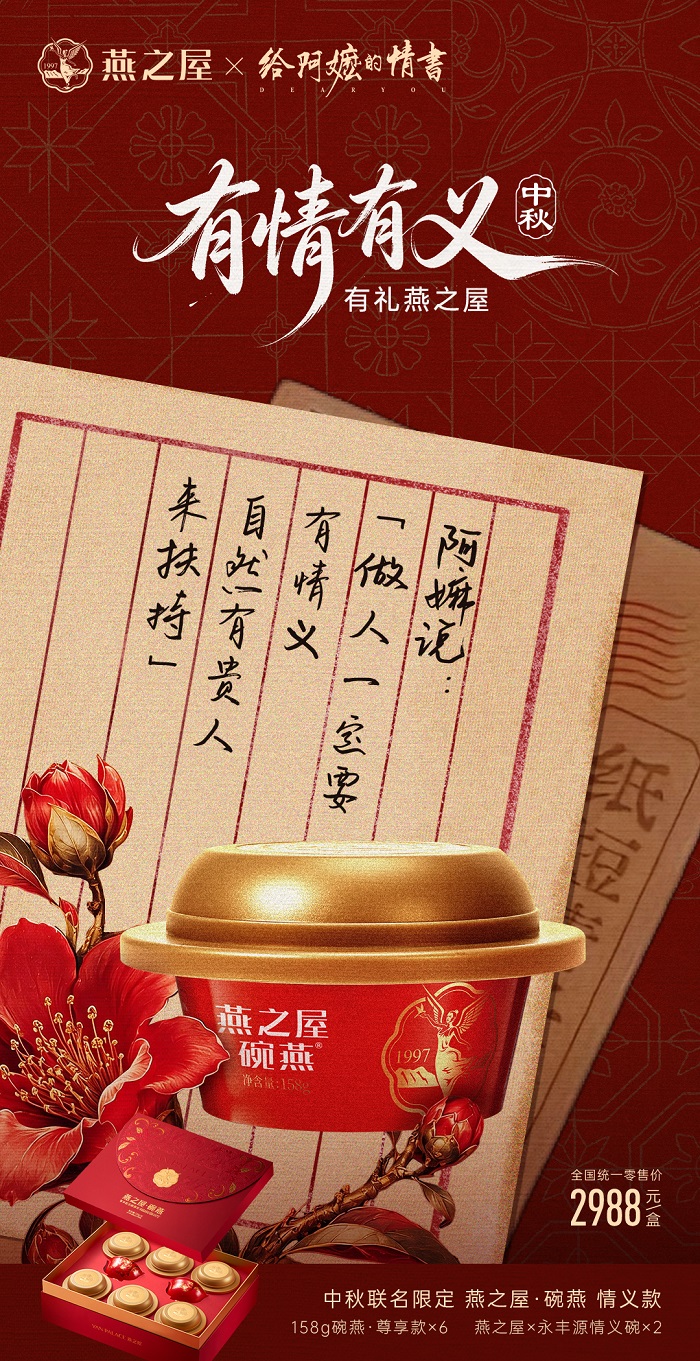 1997 燕之屋 × 给阿嬷的情書
DEAR YOU
有情有义 中秋
有礼燕之屋
阿嬷说：
「做人一定要
有情义
自然有貴人
来扶持」
纸短情
燕之屋
碗燕®
净含量:158g
1997
燕之屋·碗燕
全国统一零售价
2988元/盒
中秋联名限定 燕之屋·碗燕 情义款
158g碗燕·尊享款×6 燕之屋×永丰源情义碗×2